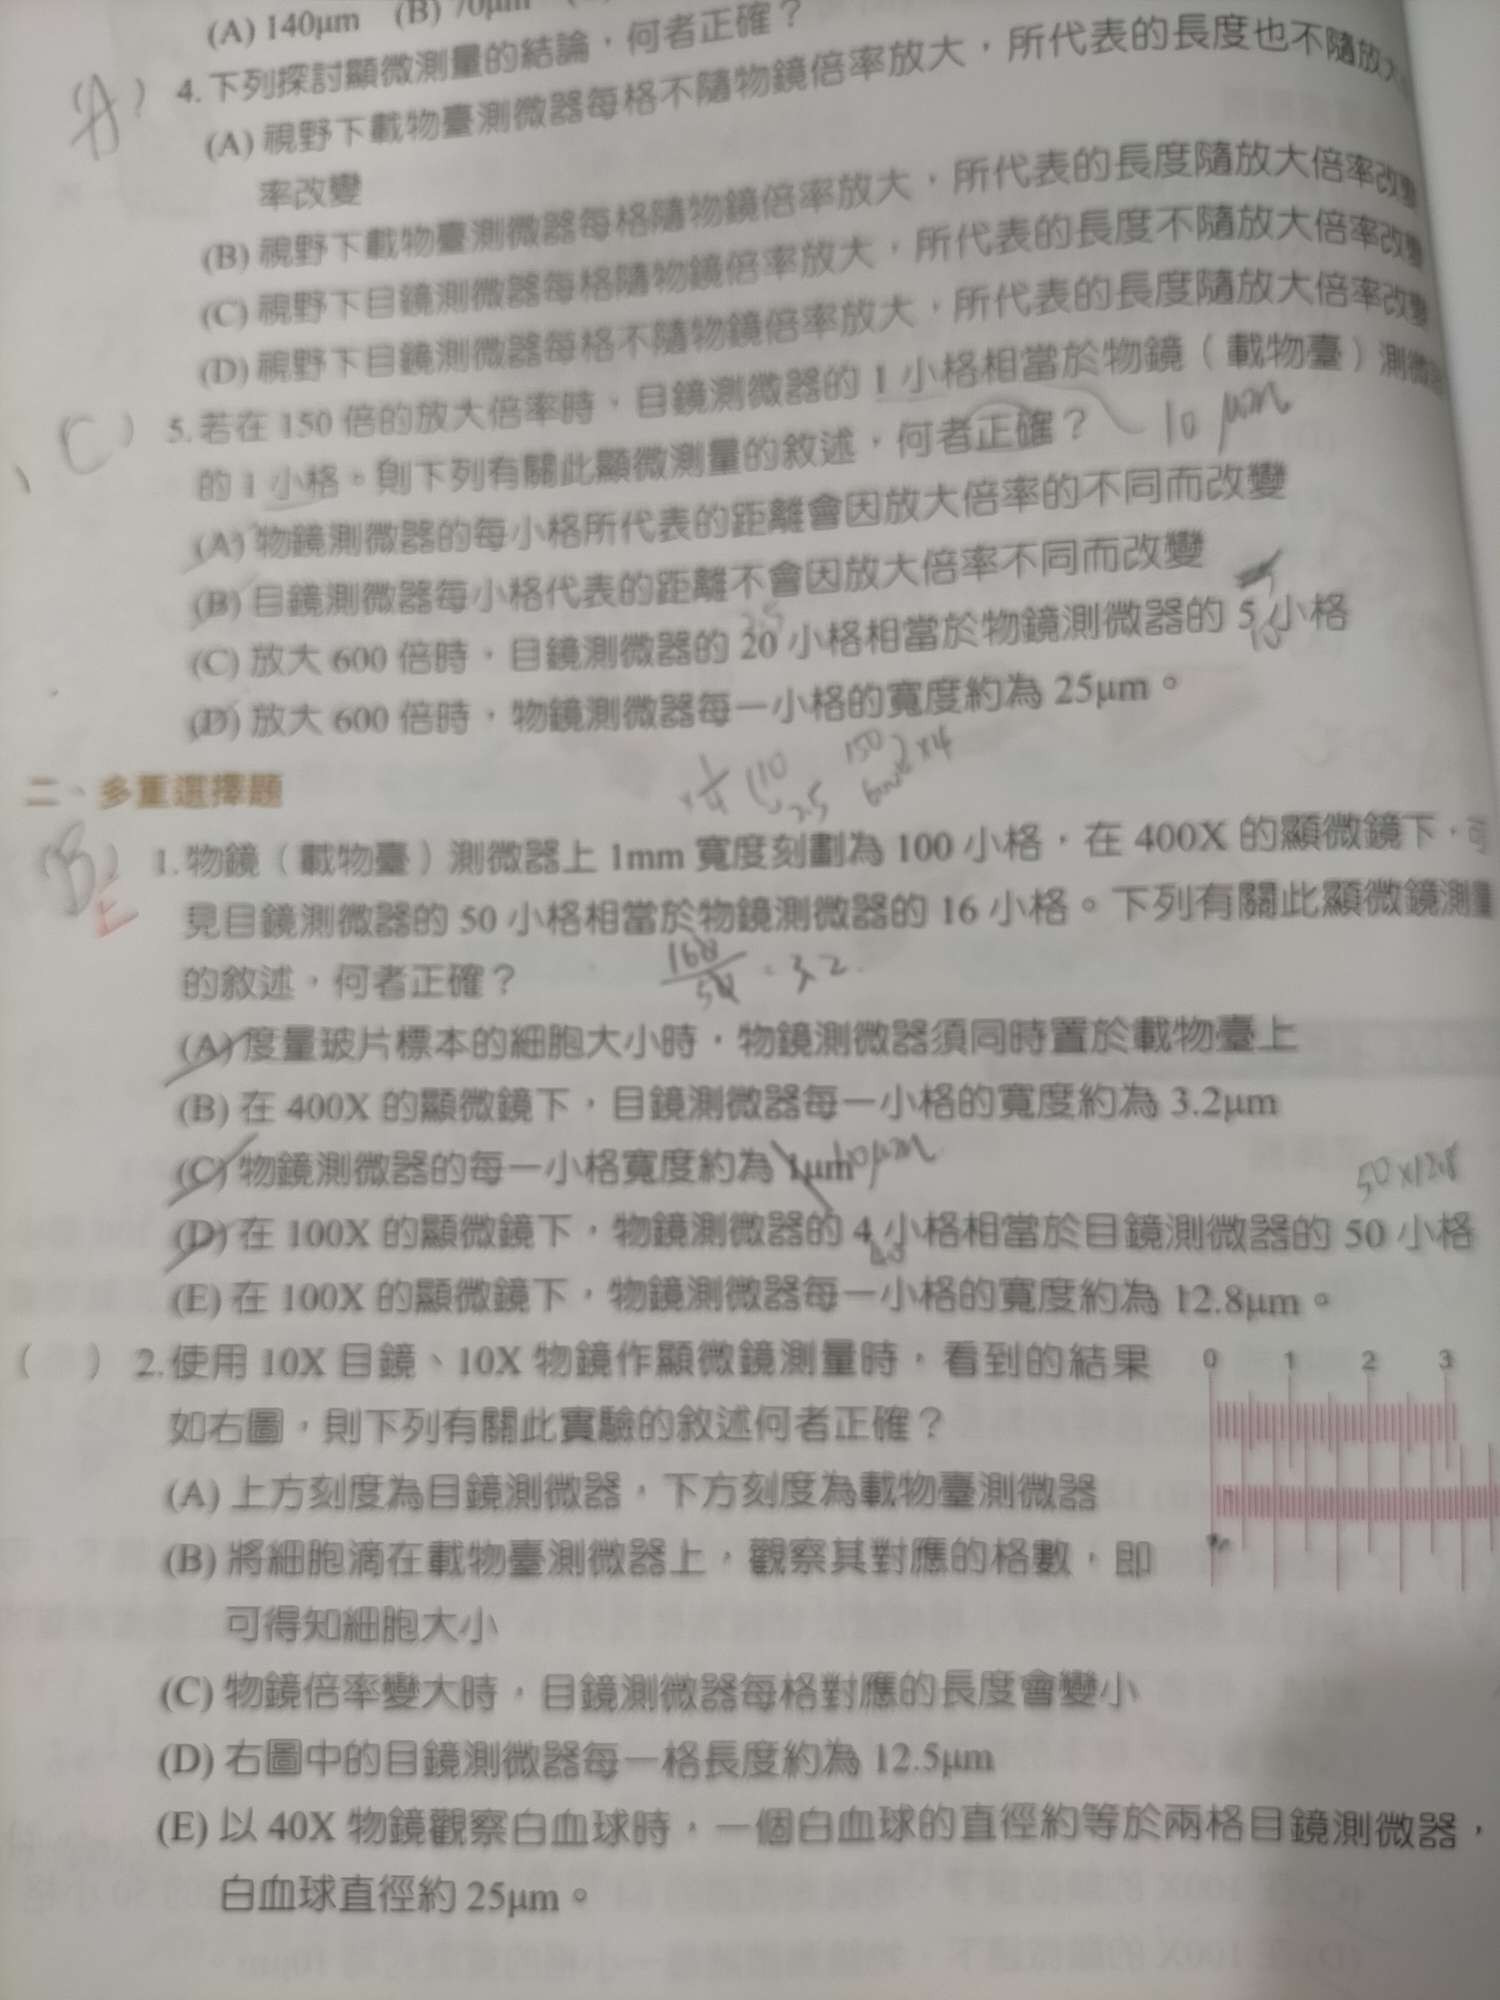 (A) 140μm (B) 70μm
(A) 4. 下列探討顯微測量的結論，何者正確？
(A) 視野下載物臺測微器每格不隨物鏡倍率放大，所代表的長度也不隨放大
率改變
(B) 視野下載物臺測微器每格隨物鏡倍率放大，所代表的長度隨放大倍率改變
(C) 視野下目鏡測微器每格隨物鏡倍率放大，所代表的長度不隨放大倍率改變
(D) 視野下目鏡測微器每格不隨物鏡倍率放大，所代表的長度隨放大倍率改變
(C) 5. 若在 150 倍的放大倍率時，目鏡測微器的 1 小格相當於物鏡（載物臺）測微器
的 1 小格。則下列有關此顯微測量的敘述，何者正確？ 10 μm
(A) 物鏡測微器的每小格所代表的距離會因放大倍率的不同而改變
(B) 目鏡測微器每小格代表的距離不會因放大倍率不同而改變
2.5
(C) 放大 600 倍時，目鏡測微器的 20 小格相當於物鏡測微器的 5 小格
10
(D) 放大 600 倍時，物鏡測微器每一小格的寬度約為 25μm。
×1/4 10 2.5 150 600 ×4
二、多重選擇題
(B E) 1. 物鏡（載物臺）測微器上 1mm 寬度刻劃為 100 小格，在 400X 的顯微鏡下，可
見目鏡測微器的 50 小格相當於物鏡測微器的 16 小格。下列有關此顯微鏡測量
的敘述，何者正確？ 160/50 = 3.2
(A) 度量玻片標本的細胞大小時，物鏡測微器須同時置於載物臺上
(B) 在 400X 的顯微鏡下，目鏡測微器每一小格的寬度約為 3.2μm
(C) 物鏡測微器的每一小格寬度約為 1μm 10μm
50×12.8
(D) 在 100X 的顯微鏡下，物鏡測微器的 4 小格相當於目鏡測微器的 50 小格
(E) 在 100X 的顯微鏡下，物鏡測微器每一小格的寬度約為 12.8μm。
( ) 2. 使用 10X 目鏡、10X 物鏡作顯微鏡測量時，看到的結果
如右圖，則下列有關此實驗的敘述何者正確？
(A) 上方刻度為目鏡測微器，下方刻度為載物臺測微器
(B) 將細胞滴在載物臺測微器上，觀察其對應的格數，即
可得知細胞大小
(C) 物鏡倍率變大時，目鏡測微器每格對應的長度會變小
(D) 右圖中的目鏡測微器每一格長度約為 12.5μm
(E) 以 40X 物鏡觀察白血球時，一個白血球的直徑約等於兩格目鏡測微器，
白血球直徑約 25μm。
0 1 2 3